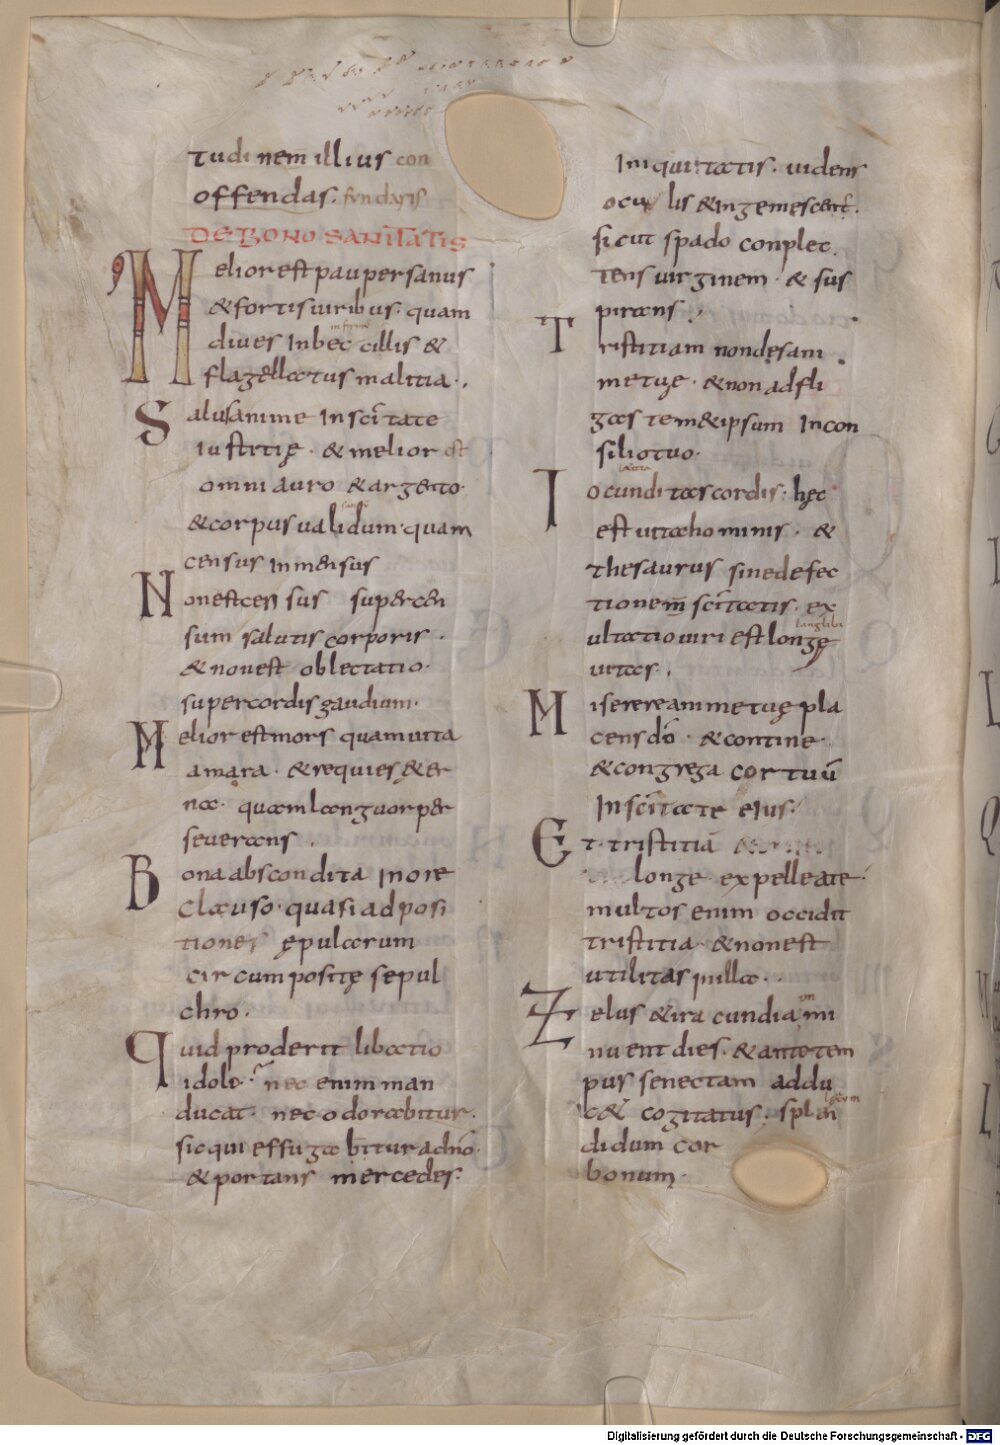 tudinem illius con
offendas. fundaris
DE BONO SANITATIS
Melior est pauper sanus
& fortis uiribus. quam
diues Inbec cillis &
flagellatus malitia.,
Salus anime In scitate
iustitię. & melior est
omni auro & argento.
& corpus ualidum. quam
census Inmensus
Non est census super cen
sum salutis corporis.
& non est oblectatio.
super cordis gaudium.
Melior est mors quam uita
amara. & requies & er
na. quam languor per
seuerans.
Bona abscondita In ore
clauso. quasi ad posi
tiones ępularum
circum positę sepul
chro.
Quid proderit libatio
idolo. nec enim man
ducat. nec odorabitur.
sic qui effugabitur a dno.
& portans mercedes:
Iniquitatis. uidens
oculis & Ingemescens.
sicut spado conplec
tens uirginem. & sus
pirans.,
Tristitiam non des ani
me tuę. & non adfli
gas tem&ipsum In con
silio tuo.
Iocunditas cordis. hęc
est uita hominis. &
thesaurus sine defec
tionem scitatis. ex
ultatio uiri est longę
uitas.,
Miserere anime tuę pla
cens do. & contine.
& congrega cor tuū
In scitate eius.
Et tristitiā
longe expelle a te.
multos enim occidit
tristitia. & non est
utilitas In illa.
Zelus & ira cundia mi
nuent dies. & ante tem
pus senectam addu
c& cogitatus. splen
didum cor
bonum.
Digitalisierung gefördert durch die Deutsche Forschungsgemeinschaft - DFG